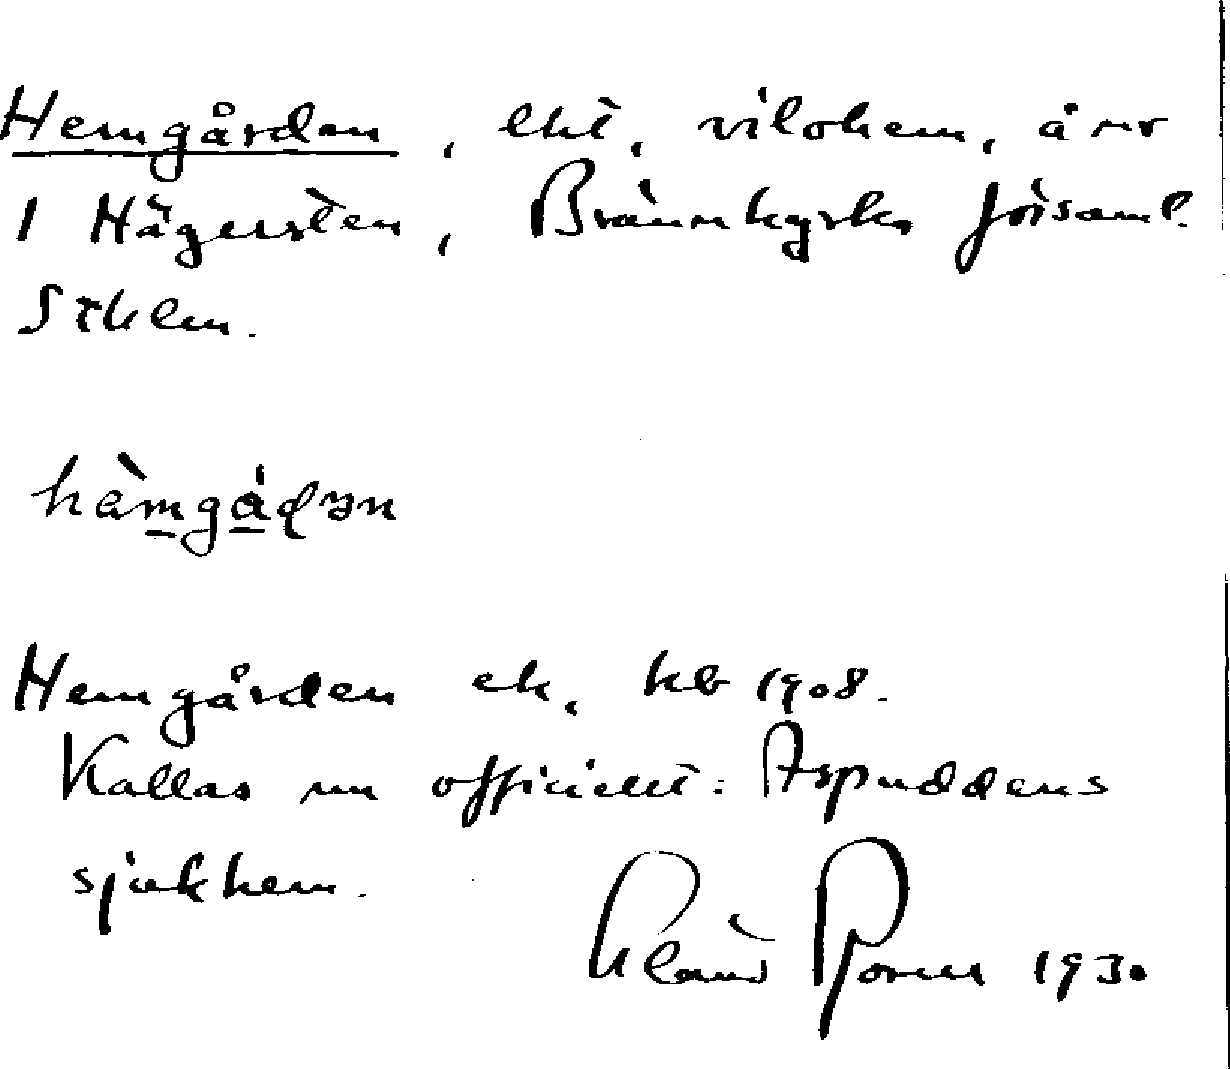 Hemgården, lht, vilohem, å nr
1 Hägersten, Brännkyrka församl.
Sthlm.
hàmgådən
Hemgården ek, kb 1908.
Kallas nu officiellt: Aspuddens
sjukhem.
1930